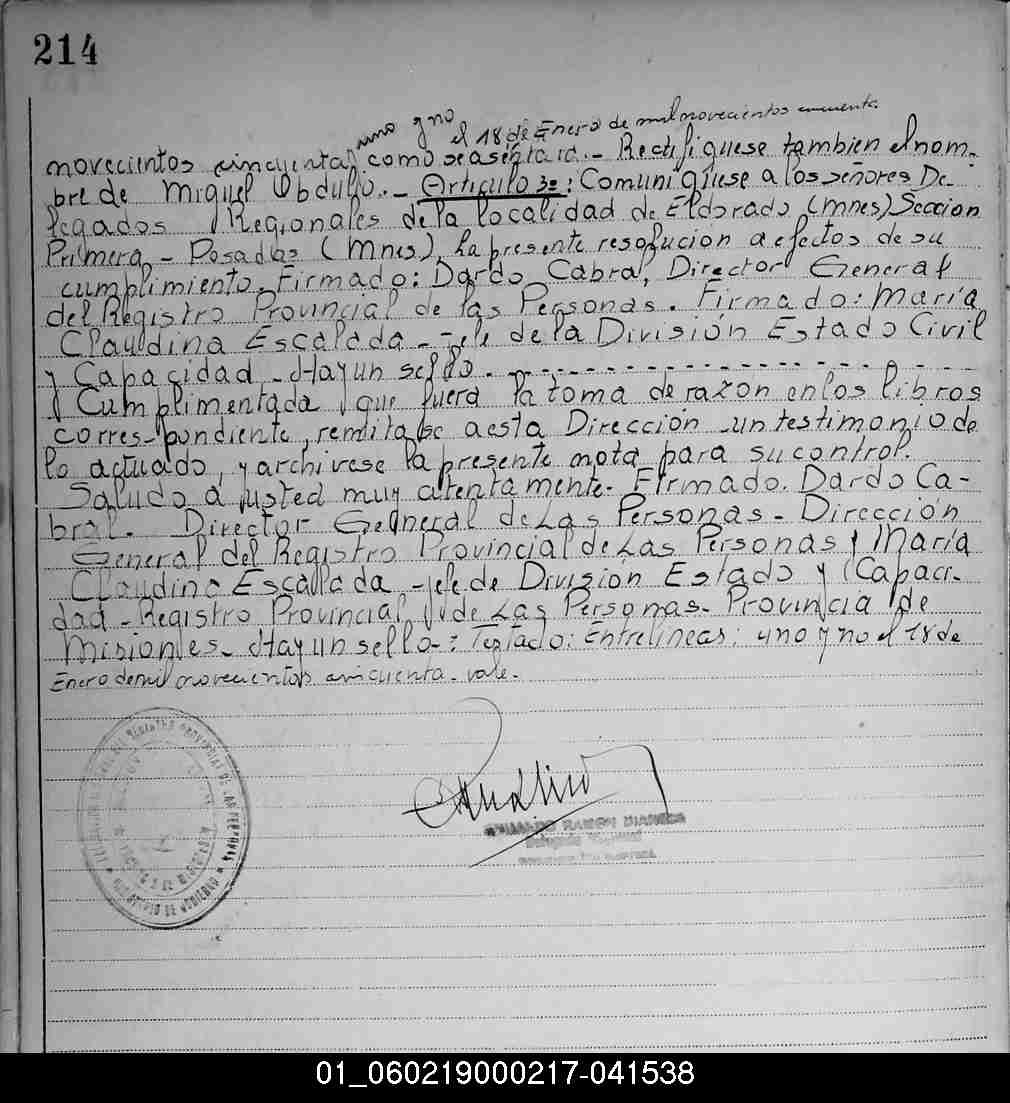 214
uno y no el 18 de Enero de mil novecientos cincuenta.
novecientos cincuenta como se asentara.- Rectifiquese tambien el nom-
bre de Miguel Obdulio.- Articulo 3º: Comuniquese a los señores De-
legados Regionales de la localidad de Eldorado (Mnes) Seccion
Primera - Posadas (Mnes), la presente resolucion a efectos de su
cumplimiento. Firmado: Dardo Cabral, Director General
del Registro Provincial de las Personas. Firmado: María
Claudina Escalada - Jefe de la División Estado Civil
y Capacidad - Hay un sello.
Cumplimentada que fuera la toma de razon en los libros
corres-pondiente, remitase a esta Dirección un testimonio de
lo actuado, y archivese la presente nota para su control.
Saludo a usted muy atentamente. Firmado. Dardo Ca-
bral. Director General de Las Personas - Dirección
General del Registro Provincial de Las Personas y María
Claudina Escalada - Jefe de División Estado y Capaci-
dad - Registro Provincial de Las Personas - Provincia de
Misiones - Hay un sello -: Testado: Entrelineas: uno y no el 18 de
Enero de mil novecientos cincuenta - vale.
RAMON
01_060219000217-041538